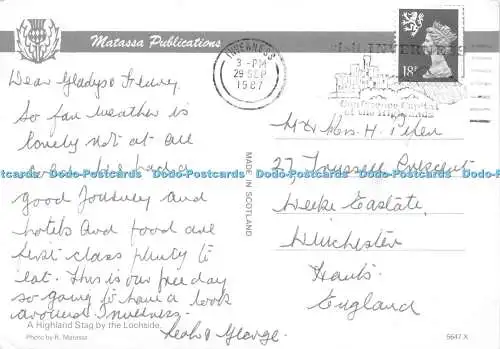 Matassa Publications
INVERNESS
3 - PM
29 SEP
1987
Visit INVERNESS
Conference Capital
of the Highlands
18P
Dear Gladys & Henry
So far weather is
lovely not at all
good Journey and
hotels and food are
first class plenty to
eat. This is our free day
so going to have a look
around Inverness.
George.
A Highland Stag by the Lochside.
Photo by R. Matassa
MADE IN SCOTLAND
Mr & Mrs. H.
27, Trussell Crescent
Weeke Eastate,
Winchester
Hants.
England
5647 X
Postcards Postcards Postcards Postcards Postcards Postcards